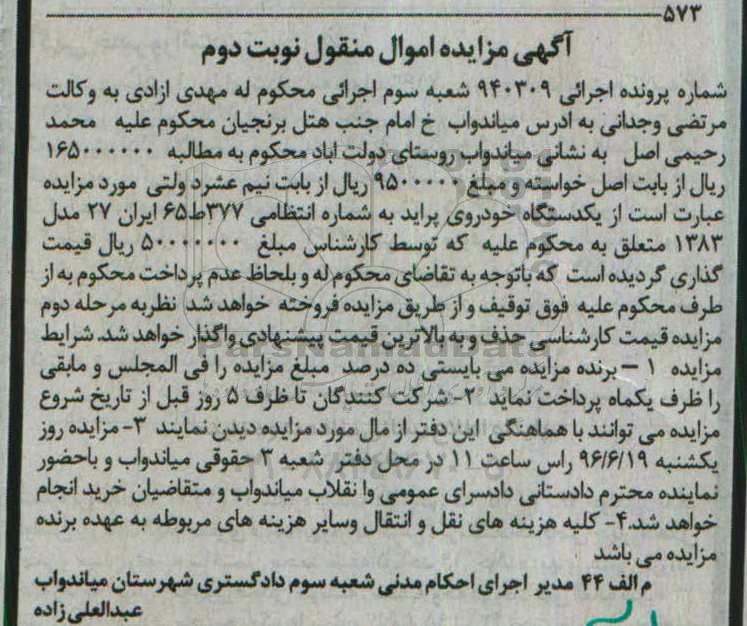 ۵۷۳
آگهی مزایده اموال منقول نوبت دوم
شماره پرونده اجرائی ۹۴۰۳۰۹ شعبه سوم اجرائی محکوم له مهدی ازادی به وکالت
مرتضی وجدانی به ادرس میاندواب خ امام جنب هتل برنجیان محکوم علیه محمد
رحیمی اصل به نشانی میاندواب روستای دولت اباد محکوم به مطالبه ۱۶۵۰۰۰۰۰۰
ریال از بابت اصل خواسته و مبلغ ۹۵۰۰۰۰۰ ریال از بابت نیم عشرد ولتی مورد مزایده
عبارت است از یکدستگاه خودروی پراید به شماره انتظامی ۳۷۷ط۶۵ ایران ۲۷ مدل
۱۳۸۳ متعلق به محکوم علیه که توسط کارشناس مبلغ ۵۰۰۰۰۰۰۰ ریال قیمت
گذاری گردیده است که باتوجه به تقاضای محکوم له و بلحاظ عدم پرداخت محکوم به از
طرف محکوم علیه فوق توقیف و از طریق مزایده فروخته خواهد شد نظربه مرحله دوم
مزایده قیمت کارشناسی حذف و به بالاترین قیمت پیشنهادی واگذار خواهد شد. شرایط
مزایده ۱ – برنده مزایده می بایستی ده درصد مبلغ مزایده را فی المجلس و مابقی
را ظرف یکماه پرداخت نماید ۲- شرکت کنندگان تا ظرف ۵ روز قبل از تاریخ شروع
مزایده می توانند با هماهنگی این دفتر از مال مورد مزایده دیدن نمایند ۳- مزایده روز
یکشنبه ۹۶/۶/۱۹ راس ساعت ۱۱ در محل دفتر شعبه ۳ حقوقی میاندواب و باحضور
نماینده محترم دادستانی دادسرای عمومی وا نقلاب میاندواب و متقاضیان خرید انجام
خواهد شد.۴- کلیه هزینه های نقل و انتقال وسایر هزینه های مربوطه به عهده برنده
مزایده می باشد
م الف ۴۴ مدیر اجرای احکام مدنی شعبه سوم دادگستری شهرستان میاندواب
عبدالعلی زاده